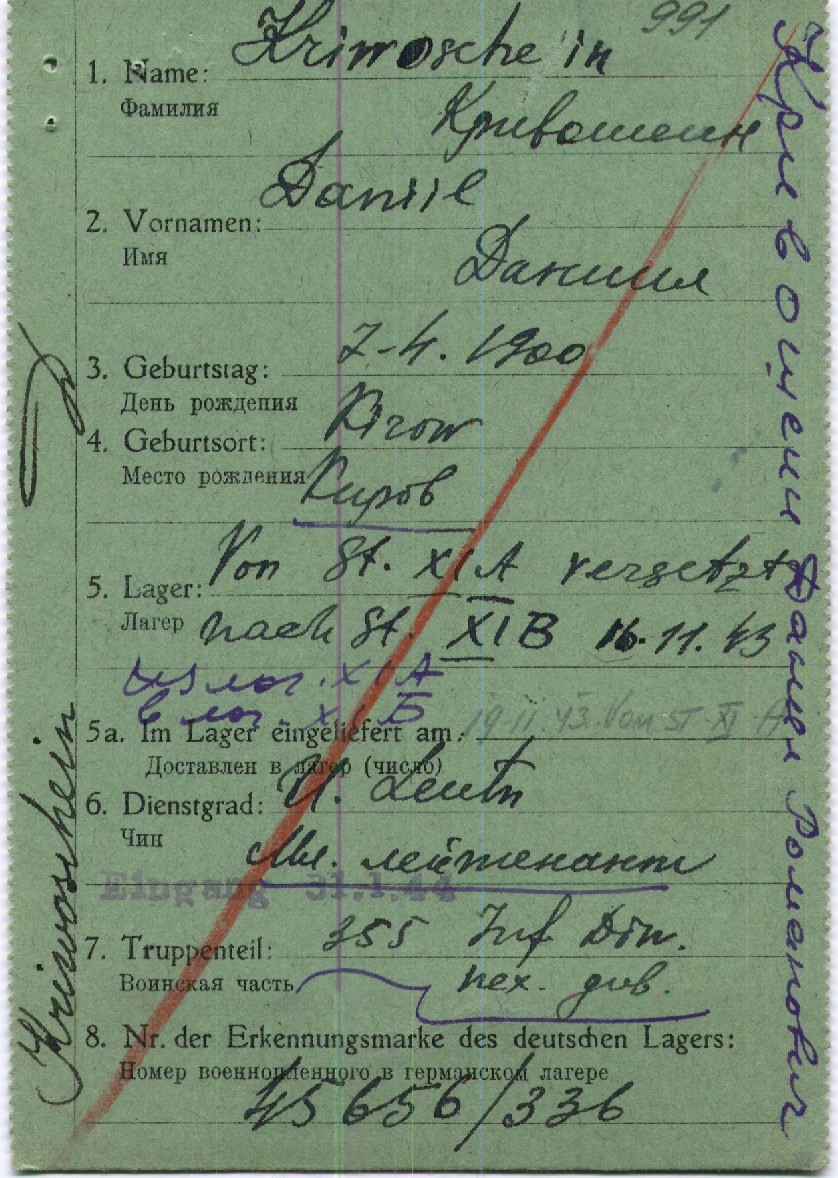 991
1. Name: Kriwoschein
Фамилия
Кривошеин
2. Vornamen: Daniil
Имя
Даниил
3. Geburtstag: 7-4. 1900
День рождения
4. Geburtsort: Kirow
Место рождения Киров
5. Lager: Von St. XI A versetzt
Лагер nach St. XI B 16.11.43
из лаг. XI A
в лаг. XI Б
5a. Im Lager eingeliefert am: 19.11.43. Von ST. XI-A
Доставлен в лагер (число)
6. Dienstgrad: U. Leutn
Чин
Мл. лейтенант
Eingang 31.1.44
7. Truppenteil: 355 Inf Div.
Воинская часть пех. див.
8. Nr. der Erkennungsmarke des deutschen Lagers:
Номер военнопленного в германском лагере
45656/336
Kriwoschein
Кривощеин Даниил Романович